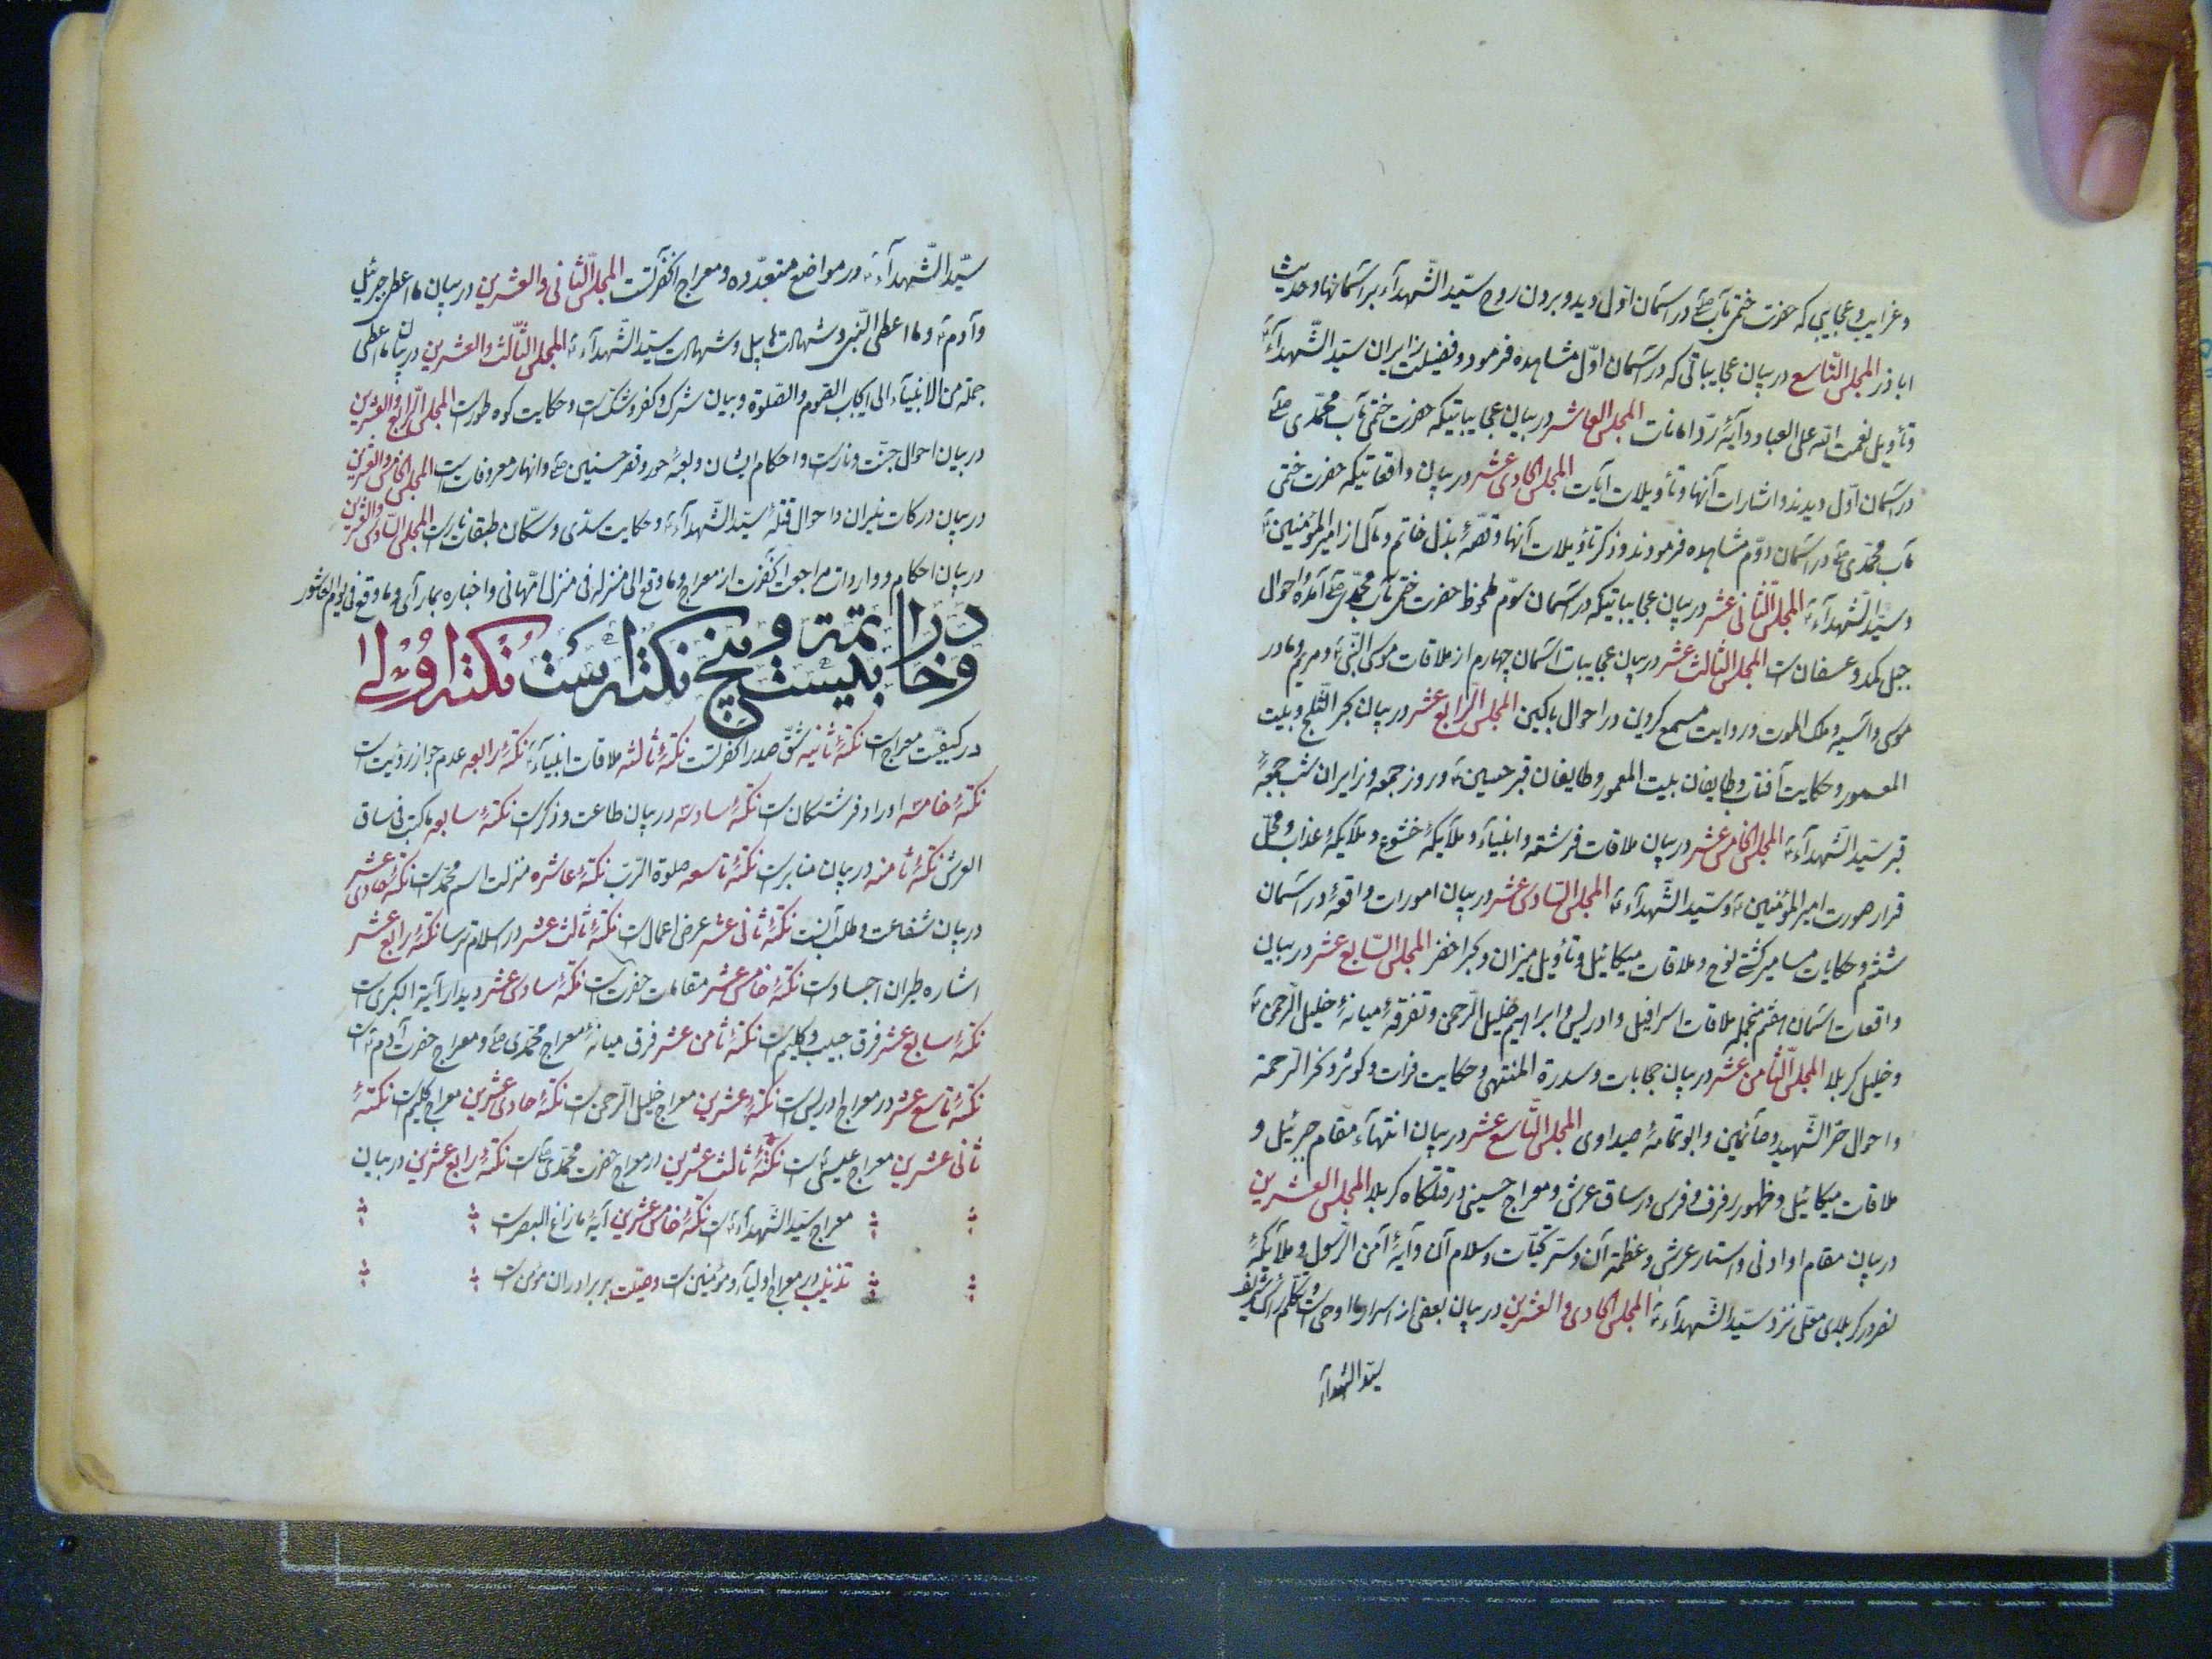 و غرایب و عجایبی که حضرت ختمی مآب ص در آسمان اوّل دید و بردن روح سیّد الشّهدآء بر آسمانها و حدیث
اباذر المجلس التّاسع در بیان عجایباتی که در آسمان اوّل مشاهده فرمود و فضیلت زایران سیّد الشّهدآء ع
و تأویل نعمت اللّه علی العباد و آیهٔ ردّ امانات المجلس العاشر در بیان عجایباتیکه حضرت ختمی مآب محمّدی ص
در آسمان اوّل دیدند و اشارات آنها و تأویلات آیات المجلس الحادی عشر در بیان واقعاتیکه حضرت ختمی
مآب محمّدی ص در آسمان دوّم مشاهده فرمودند و ذکر تأویلات آنها و قصّهٔ بذل خاتم و مآل از امیر المؤمنین ع
و سیّد الشّهدآء ع المجلس الثّانی عشر در بیان عجایباتیکه در آسمان سوّم ملحوظ حضرت ختمی مآب محمّدی ص آمده و احوال
جبل کمد و عسفان است المجلس الثّالث عشر در بیان عجایبات آسمان چهارم از ملاقات موسی النّبی ع و مریم و مادر
موسی و آسیه و ملک الموت و روایت مسمع کردین در احوال باکین المجلس الرّابع عشر در بیان بحر الثّلج و بیت
المعمور و حکایت آفتاب و طایفان بیت المعمور و طایفان قبر حسین ع و روز جمعه و زایران شب جمعهٔ
قبر سیّد الشّهدآء ع المجلس الخامس عشر در بیان ملاقات فرشته و انبیآء و ملآیکهٔ خشوع و ملآیکهٔ عذاب و محلّ
قرار صورت امیر المؤمنین ع و سیّد الشّهدآء ع المجلس السّادس عشر در بیان امورات واقعهٔ در آسمان
ششم و حکایات مسامیر کشتی نوح و ملاقات میکائیل و تأویل میزان و بحر اخضر المجلس السّابع عشر در بیان
واقعات آسمان هفتم منجمله ملاقات اسرافیل و ادریس و ابراهیم خلیل الرّحمن و تفرقهٔ میانهٔ خلیل الرّحمن ع
و خلیل کربلا المجلس الثّامن عشر در بیان حجابات و سدرة المنتهی و حکایت فرات و کوثر و نحر الرّحمة
و احوال حرّ الشّهید و صآئمین و ابو ثمامهٔ صیداوی المجلس التّاسع عشر در بیان انتهآء مقام جبرئیل و
ملاقات میکائیل و ظهور رفرف و فرس در ساق عرش و معراج حسینی در قتلگاه کربلا المجلس العشرین
در بیان مقام او ادنی و استار عرش و عظمة آن و سرّ تحیّات و سلام آن و آیهٔ آمن الرّسول و ملآیکهٔ
نصر در کربلای معلّی نزد سیّد الشّهدآء ع المجلس الحادی و العشرین در بیان بعض از اسرار ما اوحی است و تکلّم رأس شریف
سیّد الشّهدآء
سیّد الشّهدآء ع در مواضع متعدّده و معراج آنحضرتست المجلس الثّانی و العشرین در بیان ما اعطی جبرئیل
و آدم ع و ما اعطی النّبی و شهادت هابیل و شهادت سیّد الشّهدآء ع المجلس الثّالث و العشرین در بیان ما اعطی
جملة من الانبیآء الی ایجاب الصّوم و الصّلوة و بیان شرک و کفر و شکّ است و حکایت کوه طور است المجلس الرّابع و العشرین
در بیان احوال جنّت و نار است و احکام ایشان و لعبهٔ حور و قصر حسنین ع و انهار معروفات است المجلس الخامس و العشرین
در بیان درکات نیران و احوال قتلهٔ سیّد الشّهدآء ع و حکایت سدّی و سکّان طبقات نار است المجلس السّادس و العشرین
در بیان احکام و واردات مراجعت آنحضرت از معراج و ما وقع الی منزله فی منزل امّهانی و اخباره بما رآی و ما وقع فی یوم العاشور
و خاتمه در آن بیست و پنج نکته است نکته اولی
در کیفیّت معراج است نکتهٔ ثانیه شقّ صدر آنحضرتست نکتهٔ ثالثه ملاقات انبیآء نکتهٔ رابعه عدم جواز رؤیت است
نکتهٔ خامسه اوراد فرشتکان است نکتهٔ سادسه در بیان طاعت و ذکر است نکتهٔ سابعه ما کتب فی ساق
العرش نکتهٔ ثامنه در بیان منابر است نکتهٔ تاسعه صلوة الرّبّ نکتهٔ عاشره منزلت اسم محمّد است نکتهٔ حادی عشر
در بیان شفاعت و طلب آنست نکتهٔ ثانی عشر عرض اعمال است نکتهٔ ثالث عشر در اسلام ترسا نکتهٔ رابع عشر
اشاره طیران اجساد است نکتهٔ خامس عشر مقامات حضرت است نکتهٔ سادس عشر دیدار آیة الکبری است
نکتهٔ سابع عشر فرق حبیب و کلیم است نکتهٔ ثامن عشر فرق میانهٔ معراج محمّدی ص و معراج حضرت آدم ع است
نکتهٔ تاسع عشر در معراج ادریس است نکتهٔ عشرین معراج خلیل الرّحمن است نکتهٔ حادی عشرین معراج کلیم است نکتهٔ
ثانی عشرین معراج عیسی است نکتهٔ ثالث عشرین در معراج حضرت محمّدی ص است نکتهٔ رابع عشرین در بیان
معراج سیّد الشّهدآء ع است نکتهٔ خامس عشرین آیهٔ ما زاغ البصر است
تذنیب در معراج اولیآء و مؤمنین است وصیّت بر برادران مؤمن است